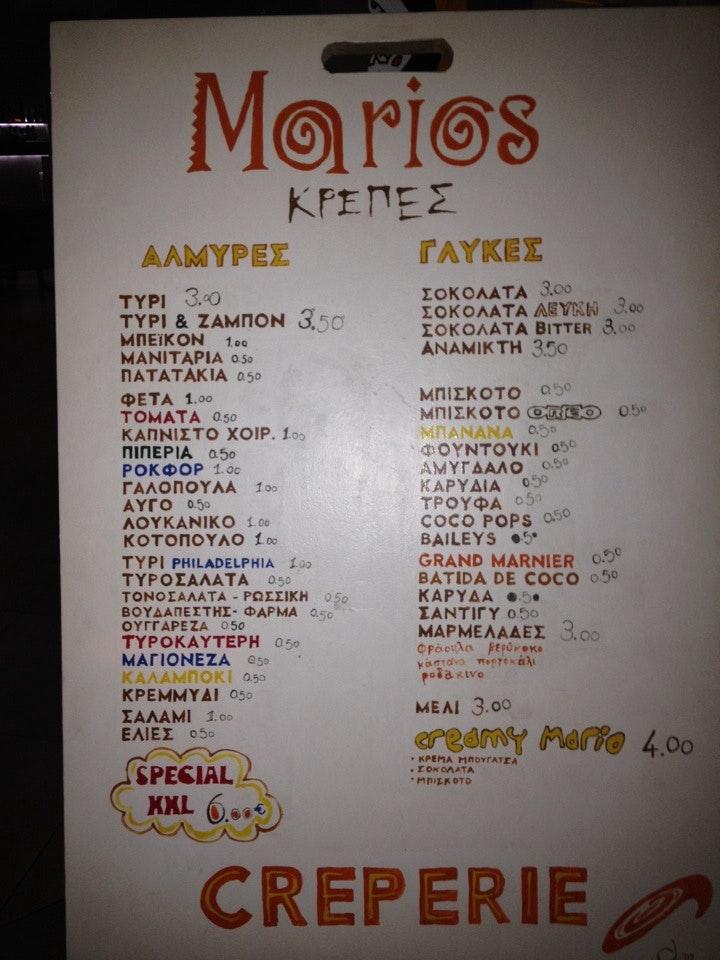 Marios
ΚΡΕΠΕΣ
ΑΛΜΥΡΕΣ
ΤΥΡΙ 3.00
ΤΥΡΙ & ΖΑΜΠΟΝ 3.50
ΜΠΕΪΚΟΝ 1.00
ΜΑΝΙΤΑΡΙΑ 0.50
ΠΑΤΑΤΑΚΙΑ 0.50
ΦΕΤΑ 1.00
ΤΟΜΑΤΑ 0.50
ΚΑΠΝΙΣΤΟ ΧΟΙΡ. 1.00
ΠΙΠΕΡΙΑ 0.50
ΡΟΚΦΟΡ 1.00
ΓΑΛΟΠΟΥΛΑ 1.00
ΑΥΓΟ 0.50
ΛΟΥΚΑΝΙΚΟ 1.00
ΚΟΤΟΠΟΥΛΟ 1.00
ΤΥΡΙ PHILADELPHIA 1.00
ΤΥΡΟΣΑΛΑΤΑ 0.50
ΤΟΝΟΣΑΛΑΤΑ - ΡΩΣΣΙΚΗ 0.50
ΒΟΥΔΑΠΕΣΤΗΣ- ΦΑΡΜΑ 0.50
ΟΥΓΓΑΡΕΖΑ 0.50
ΤΥΡΟΚΑΥΤΕΡΗ 0.50
ΜΑΓΙΟΝΕΖΑ 0.50
ΚΑΛΑΜΠΟΚΙ 0.50
ΚΡΕΜΜΥΔΙ 0.50
ΣΑΛΑΜΙ 1.00
ΕΛΙΕΣ 0.50
SPECIAL
XXL 6.00€
ΓΛΥΚΕΣ
ΣΟΚΟΛΑΤΑ 3.00
ΣΟΚΟΛΑΤΑ ΛΕΥΚΗ 3.00
ΣΟΚΟΛΑΤΑ BITTER 3.00
ΑΝΑΜΙΚΤΗ 3.50
ΜΠΙΣΚΟΤΟ 0.50
ΜΠΙΣΚΟΤΟ OREO 0.50
ΜΠΑΝΑΝΑ 0.50
ΦΟΥΝΤΟΥΚΙ 0.50
ΑΜΥΓΔΑΛΟ 0.50
ΚΑΡΥΔΙΑ 0.50
ΤΡΟΥΦΑ 0.50
COCO POPS 0.50
BAILEYS 0.50
GRAND MARNIER 0.50
BATIDA DE COCO 0.50
ΚΑΡΥΔΑ 0.50
ΣΑΝΤΙΓΥ 0.50
ΜΑΡΜΕΛΑΔΕΣ 3.00
φράουλα βερύκοκο
κάστανο πορτοκάλι
ροδάκινο
ΜΕΛΙ 3.00
creamy Mario 4.00
· ΚΡΕΜΑ ΜΠΟΥΓΑΤΣΑ
· ΣΟΚΟΛΑΤΑ
· ΜΠΙΣΚΟΤΟ
CREPERIE